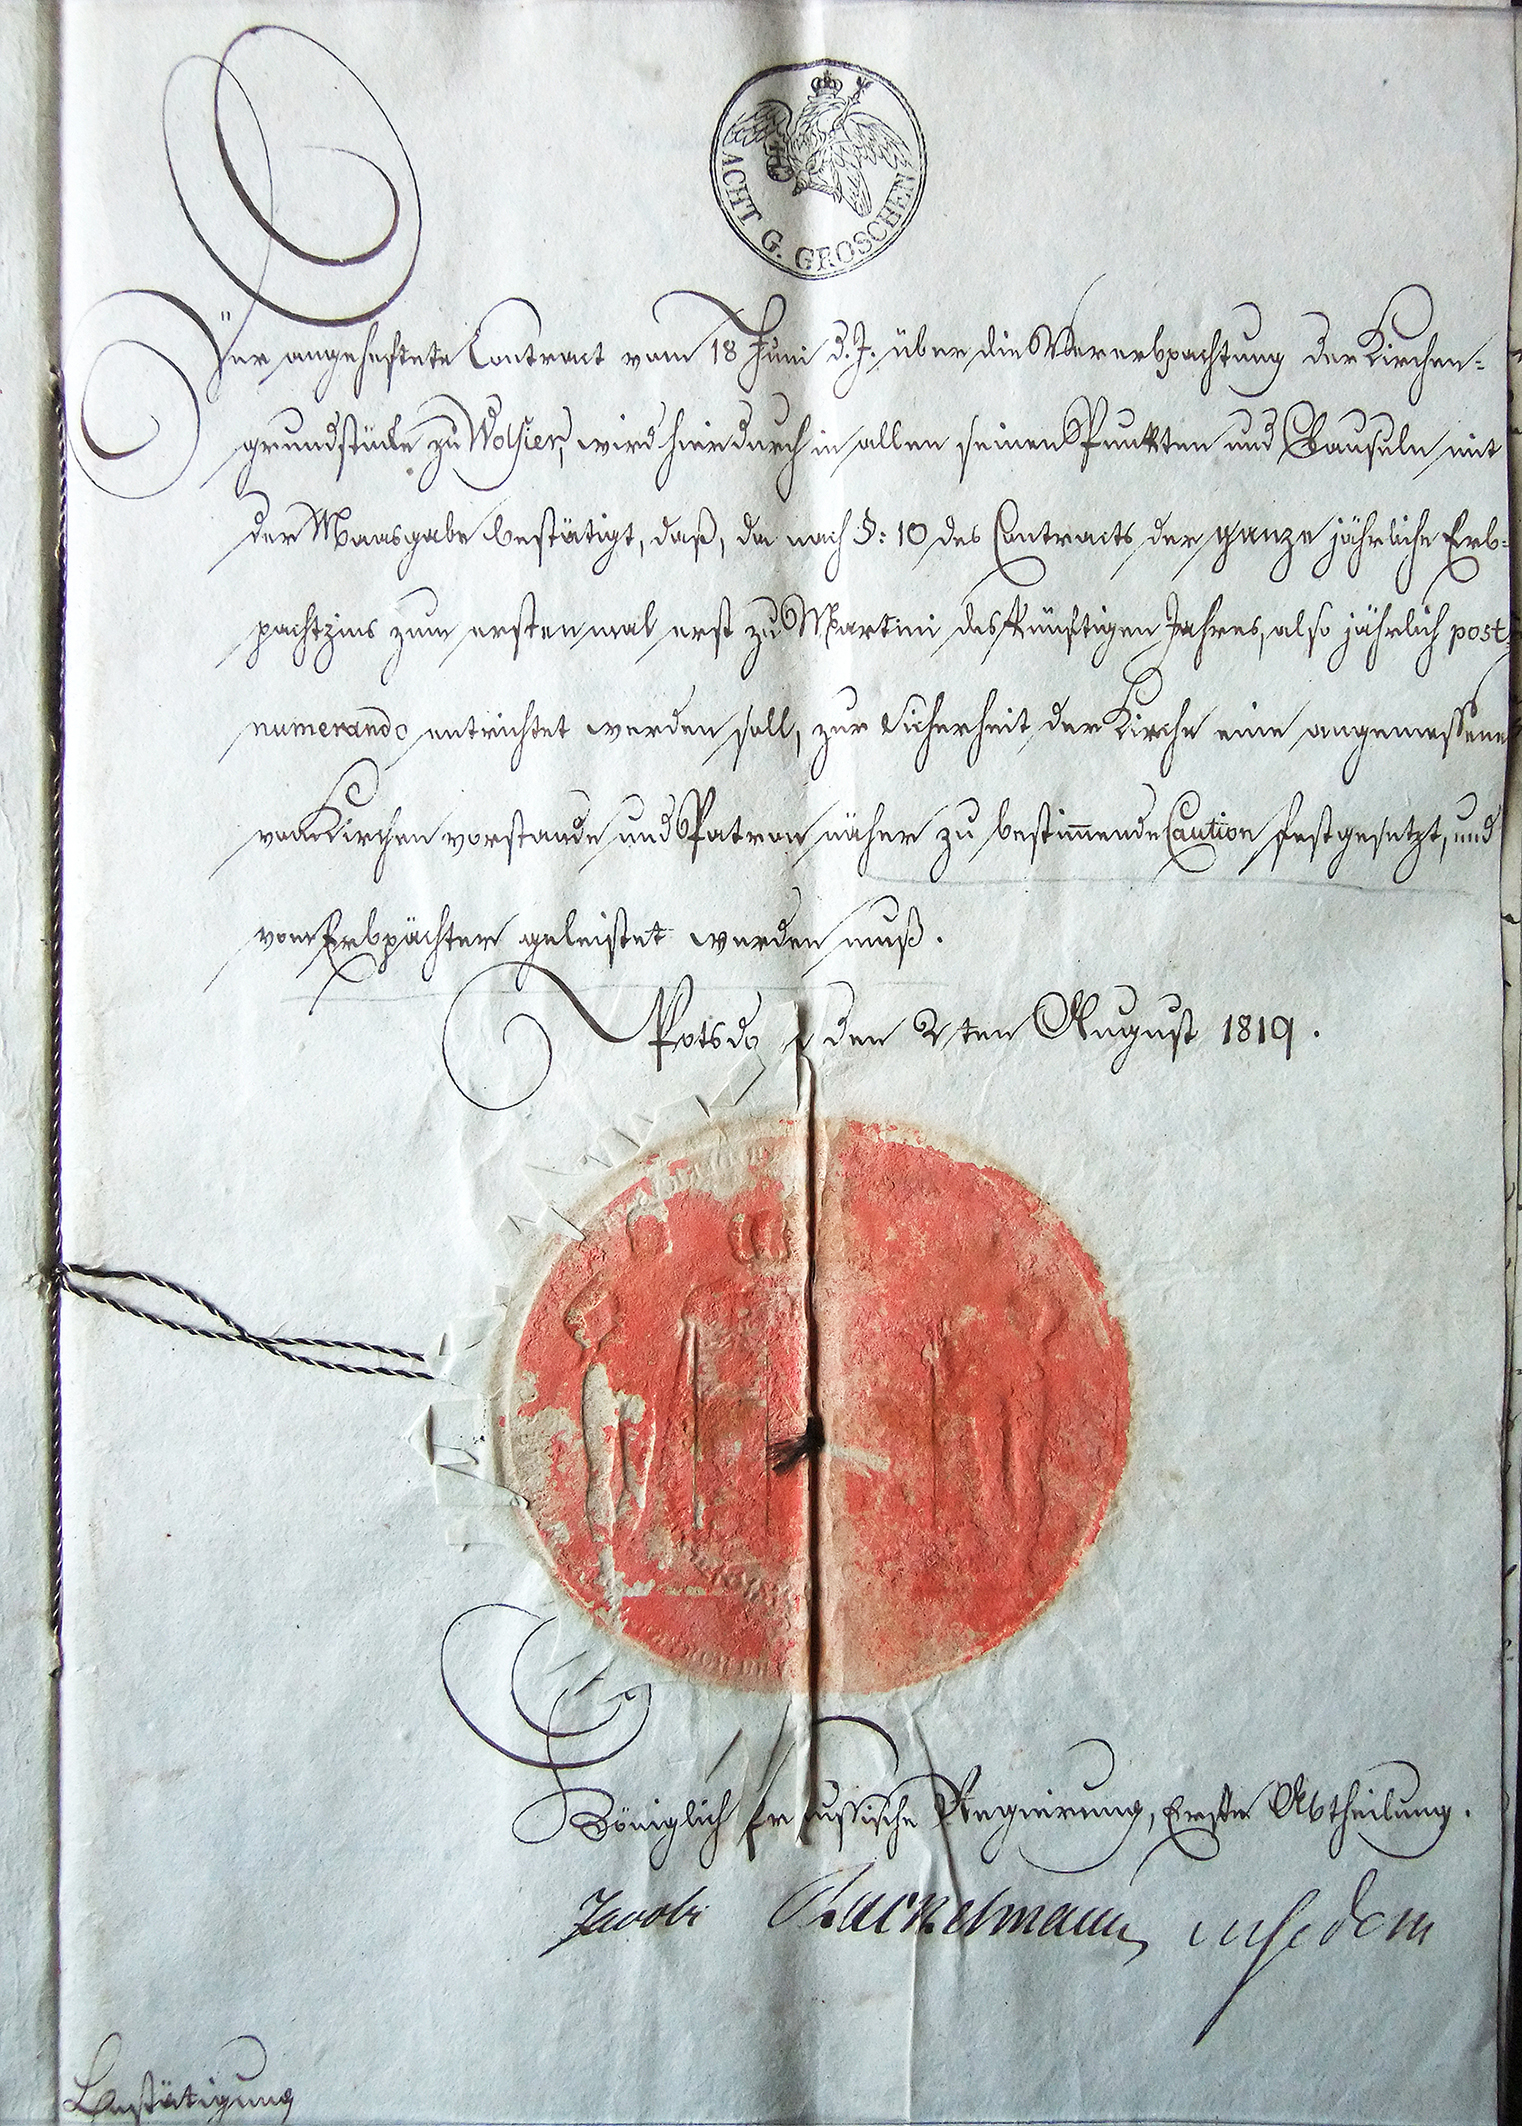 ACHT. G. GROSCHEN
Der angeheftete Contract vom 18 Juni d. J. über die Vererbpachtung der Kirchen-
grundstücke zu Wolsier, wird hierdurch in allen seinen Punkten und Clauseln mit
der Maasgabe bestätigt, daß, da nach §: 10 des Contracts der ganze jährliche Erb-
pachtzins zum erstenmal erst zu Martini des künftigen Jahres, also jährlich post-
numerando entrichtet werden soll, zur Sicherheit der Kirche eine angemessene
vom Kirchenvorstande und Patron näher zu bestimmende Caution festgesetzt, und
vom Erbpächter geleistet werden muß.
Potsdam den 2ten August 1819.
Königlich Preussische Regierung, Erste Abtheilung.
Jacobi
Bestätigung